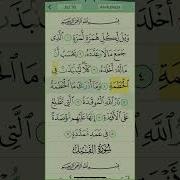 بِسْمِ اللَّهِ الرَّحْمَٰنِ الرَّحِيمِ
وَيْلٌ لِّكُلِّ هُمَزَةٍ لُّمَزَةٍ ١ الَّذِي
جَمَعَ مَالًا وَعَدَّدَهُ ٢ يَحْسَبُ أَنَّ
مَالَهُ أَخْلَدَهُ ٣ كَلَّا لَيُنبَذَنَّ فِي
الْحُطَمَةِ ٤ وَمَا أَدْرَاكَ مَا الْحُطَمَةُ ٥
نَارُ اللَّهِ الْمُوقَدَةُ ٦ الَّتِي تَطَّلِعُ
عَلَى الْأَفْئِدَةِ ٧ إِنَّهَا عَلَيْهِم مُّؤْصَدَةٌ ٨
فِي عَمَدٍ مُّمَدَّدَةٍ ٩
سُورَةُ الْفِيلِ
بِسْمِ اللَّهِ الرَّحْمَٰنِ الرَّحِيمِ